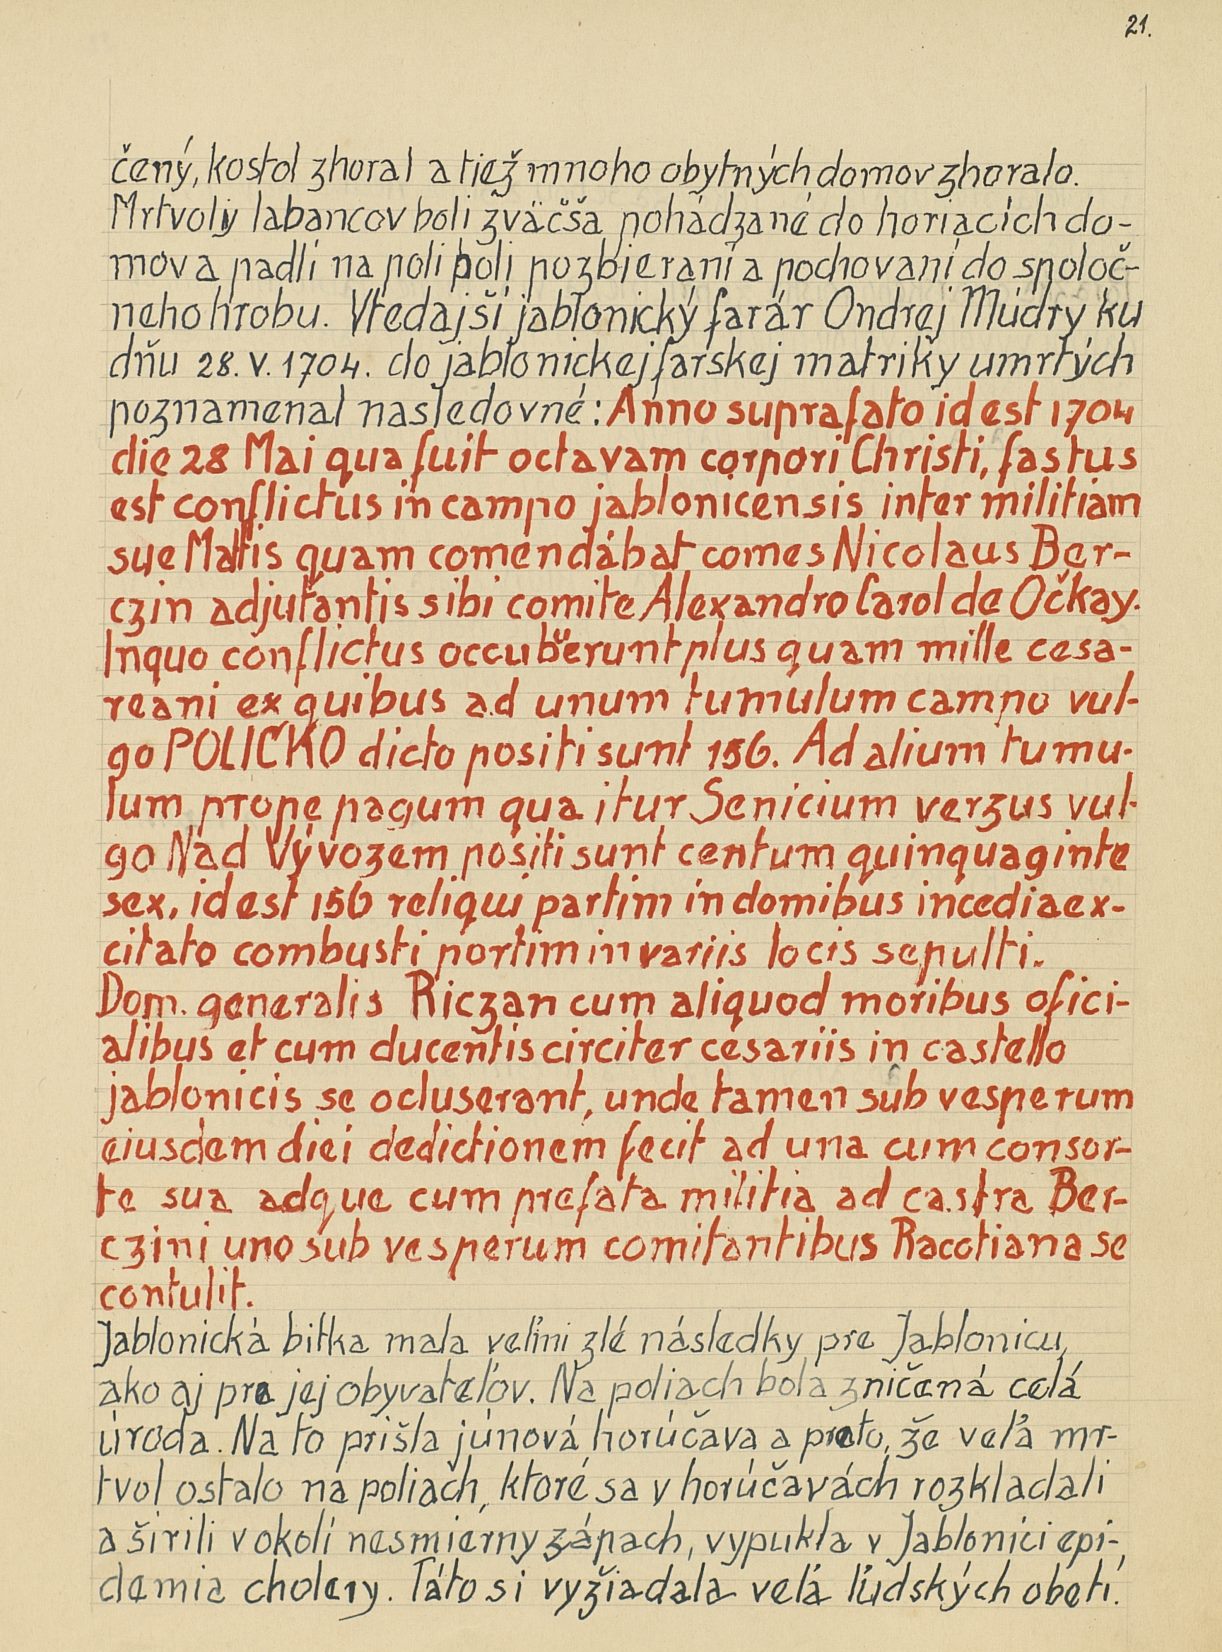 21.
čený, kostol zhoral a tiež mnoho obytných domov zhoralo.
Mrtvoly labancov boli zväčša pohádzané do horiacich do-
mov a padlí na poli boli pozbieraní a pochovaní do spoloč-
neho hrobu. Vtedajší jablonický farár Ondrej Múdry ku
dňu 28. V. 1704. do jablonickej farskej matriky umrtých
poznamenal nasledovné: Anno suprafato id est 1704
die 28 Mai qua fuit octavam corpori Christi, fastus
est conflictus in campo jablonicensis inter militiam
sue Mattis quam comendábat comes Nicolaus Ber-
czin adjutantis sibi comite Alexandro Carol de Očkay.
Inquo conflictus occuberunt plus quam mille cesa-
reani ex quibus ad unum tumulum campo vul-
go POLIČKO dicto positi sunt 156. Ad alium tumu-
lum prope pagum qua itur Senicium verzus vul-
go Nad Vývozem positi sunt centum quinquaginte
sex, id est 156 reliqui partim in domibus incediaex-
citato combusti portim in variis locis sepulti.
Dom. generalis Riczan cum aliquod moribus ofici-
alibus et cum ducentis circiter cesariis in castello
jablonicis se ocluserant, unde tamen sub vesperum
eiusdem diei dedictionem fecit ad una cum consor-
te sua adque cum prefata militia ad castra Ber-
czini uno sub vesperum comitantibus Racotiana se
contulit.
Jablonická bitka mala veľmi zlé následky pre Jablonicu,
ako aj pre jej obyvateľov. Na poliach bola zničená celá
úroda. Na to prišla júnová horúčava a preto, že veľa mr-
tvol ostalo na poliach, ktoré sa v horúčavách rozkladali
a širili v okolí nesmierny zápach, vypukla v Jablonici epi-
demia cholery. Táto si vyžiadala veľa ľudských obetí.